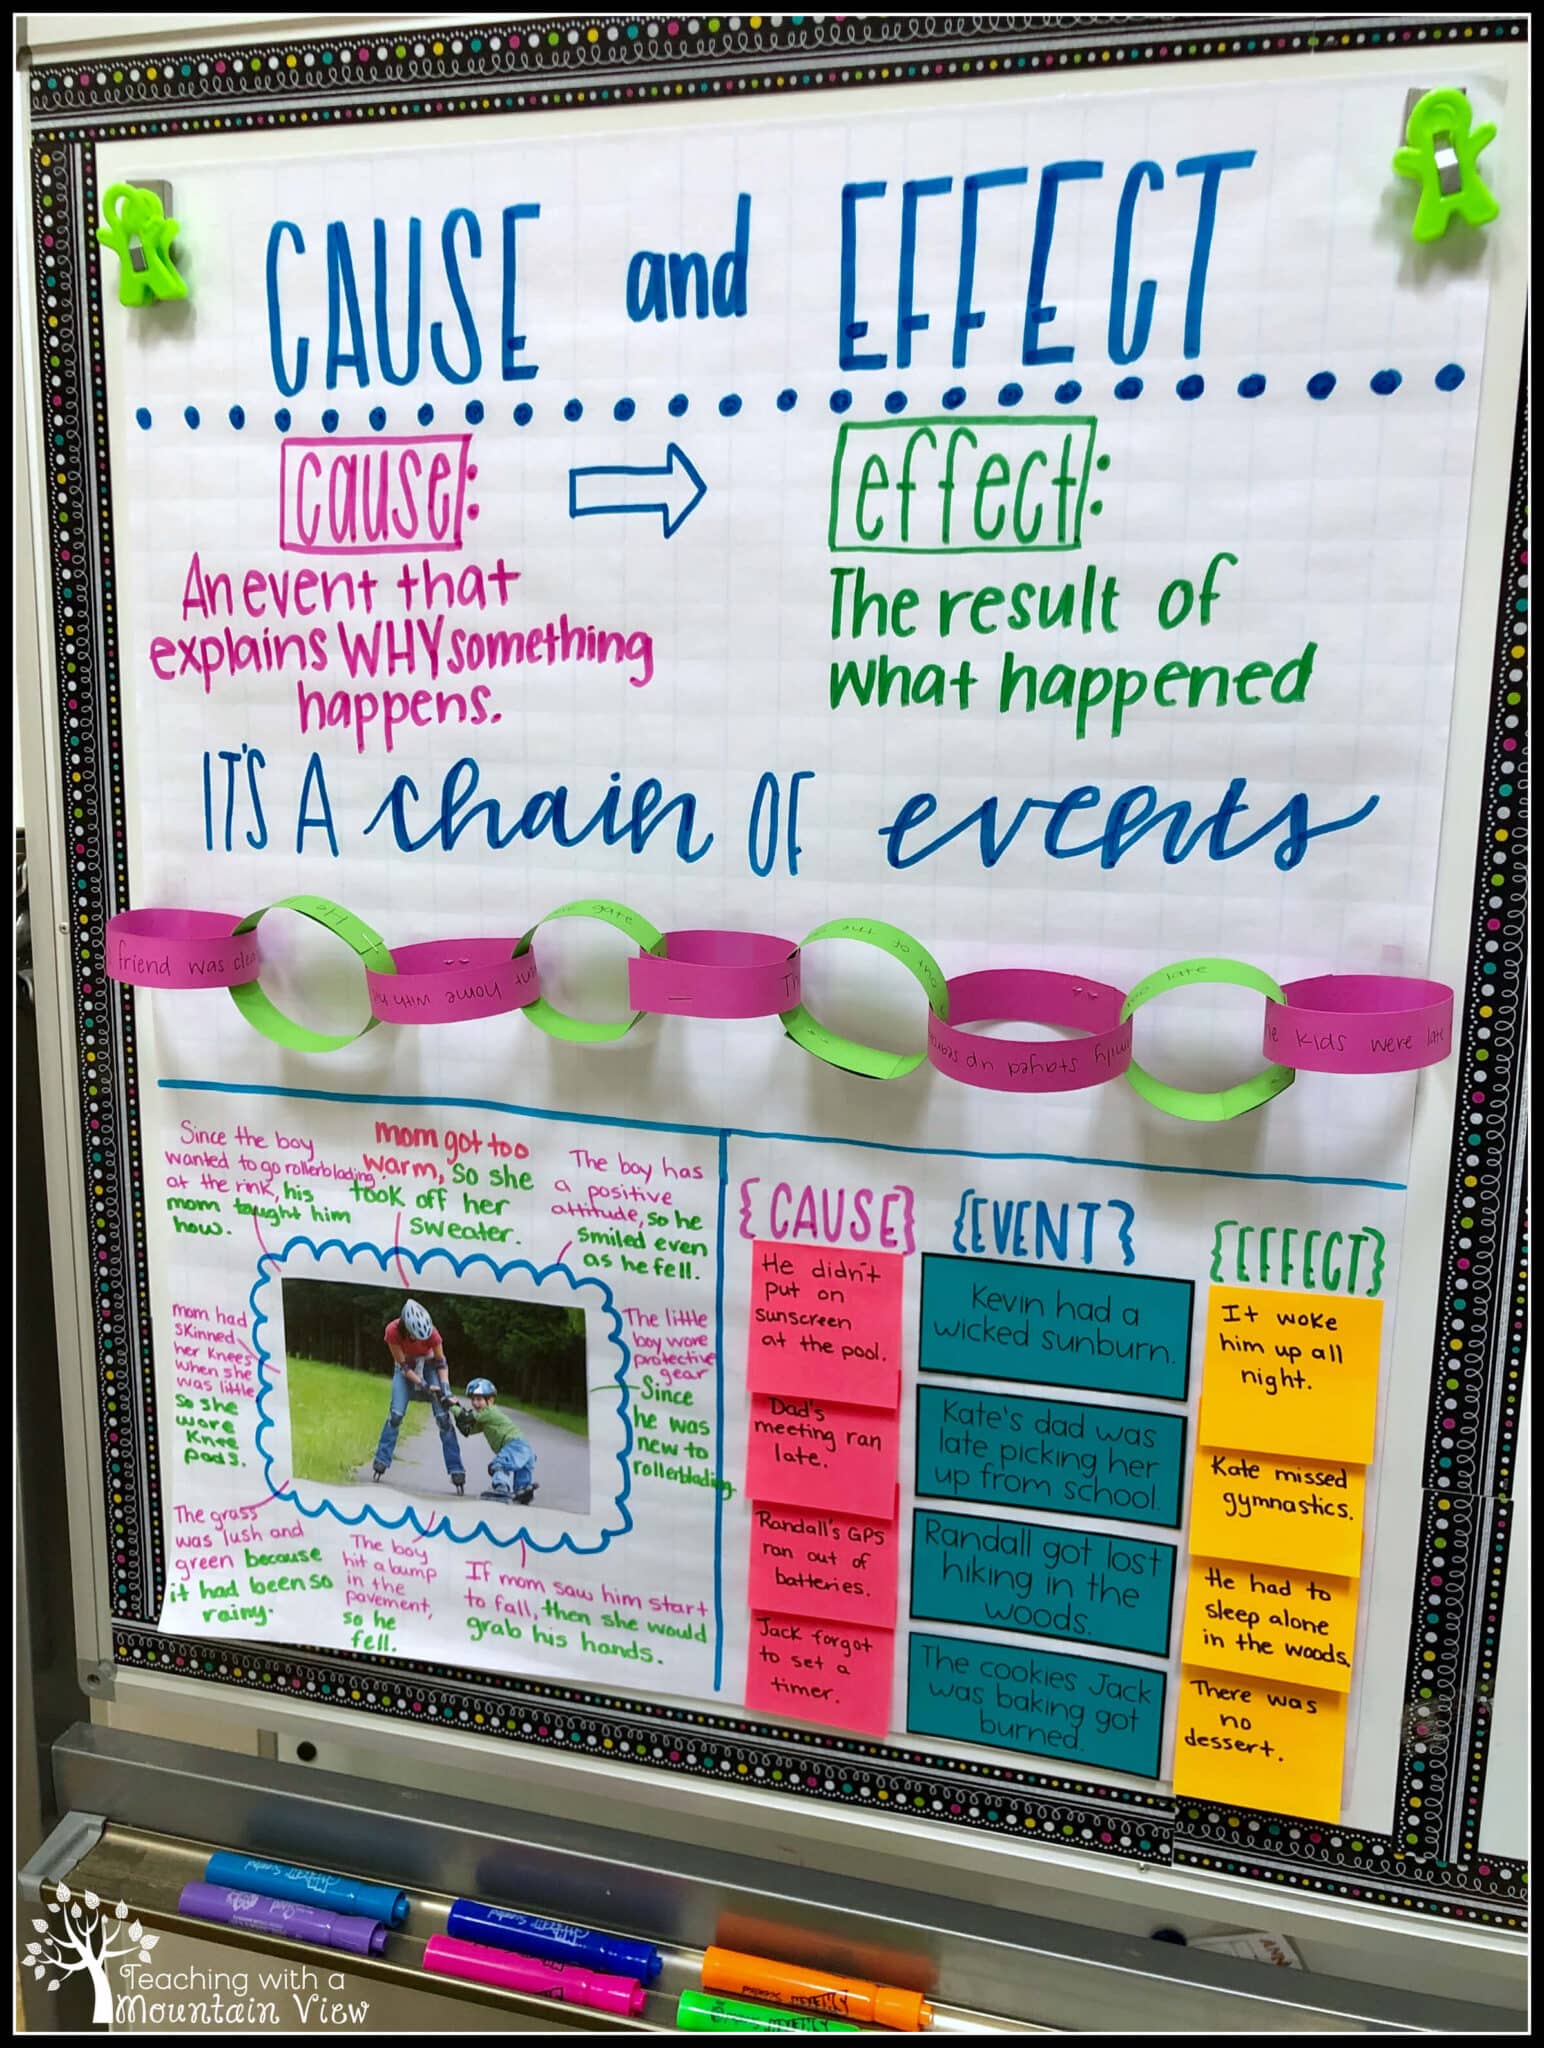 CAUSE and EFFECT
cause:
An event that
explains WHY something
happens.
effect:
The result of
what happened
IT'S A chain OF events
friend was
He
gate
home with
out of the
stayed up
late
kids were late
Since the boy
wanted to go rollerblading
at the rink, his
mom taught him
how.
mom got too
warm, so she
took off her
sweater.
The boy has
a positive
attitude, so he
smiled even
as he fell.
mom had
skinned
her knees
when she
was little
So she
wore
knee
pads.
The little
boy wore
protective
gear
Since
he was
new to
rollerblading.
The grass
was lush and
green because
it had been so
rainy.
The boy
hit a bump
in the
pavement,
so he
fell.
If mom saw him start
to fall, then she would
grab his hands.
{CAUSE}
He didn't
put on
sunscreen
at the pool.
Dad's
meeting ran
late.
Randall's GPS
ran out of
batteries.
Jack forgot
to set a
timer.
{EVENT}
Kevin had a
wicked sunburn.
Kate's dad was
late picking her
up from school.
Randall got lost
hiking in the
woods.
The cookies Jack
was baking got
burned.
{EFFECT}
It woke
him up all
night.
Kate missed
gymnastics.
He had to
sleep alone
in the woods.
There was
no
dessert.
Teaching with a
Mountain View